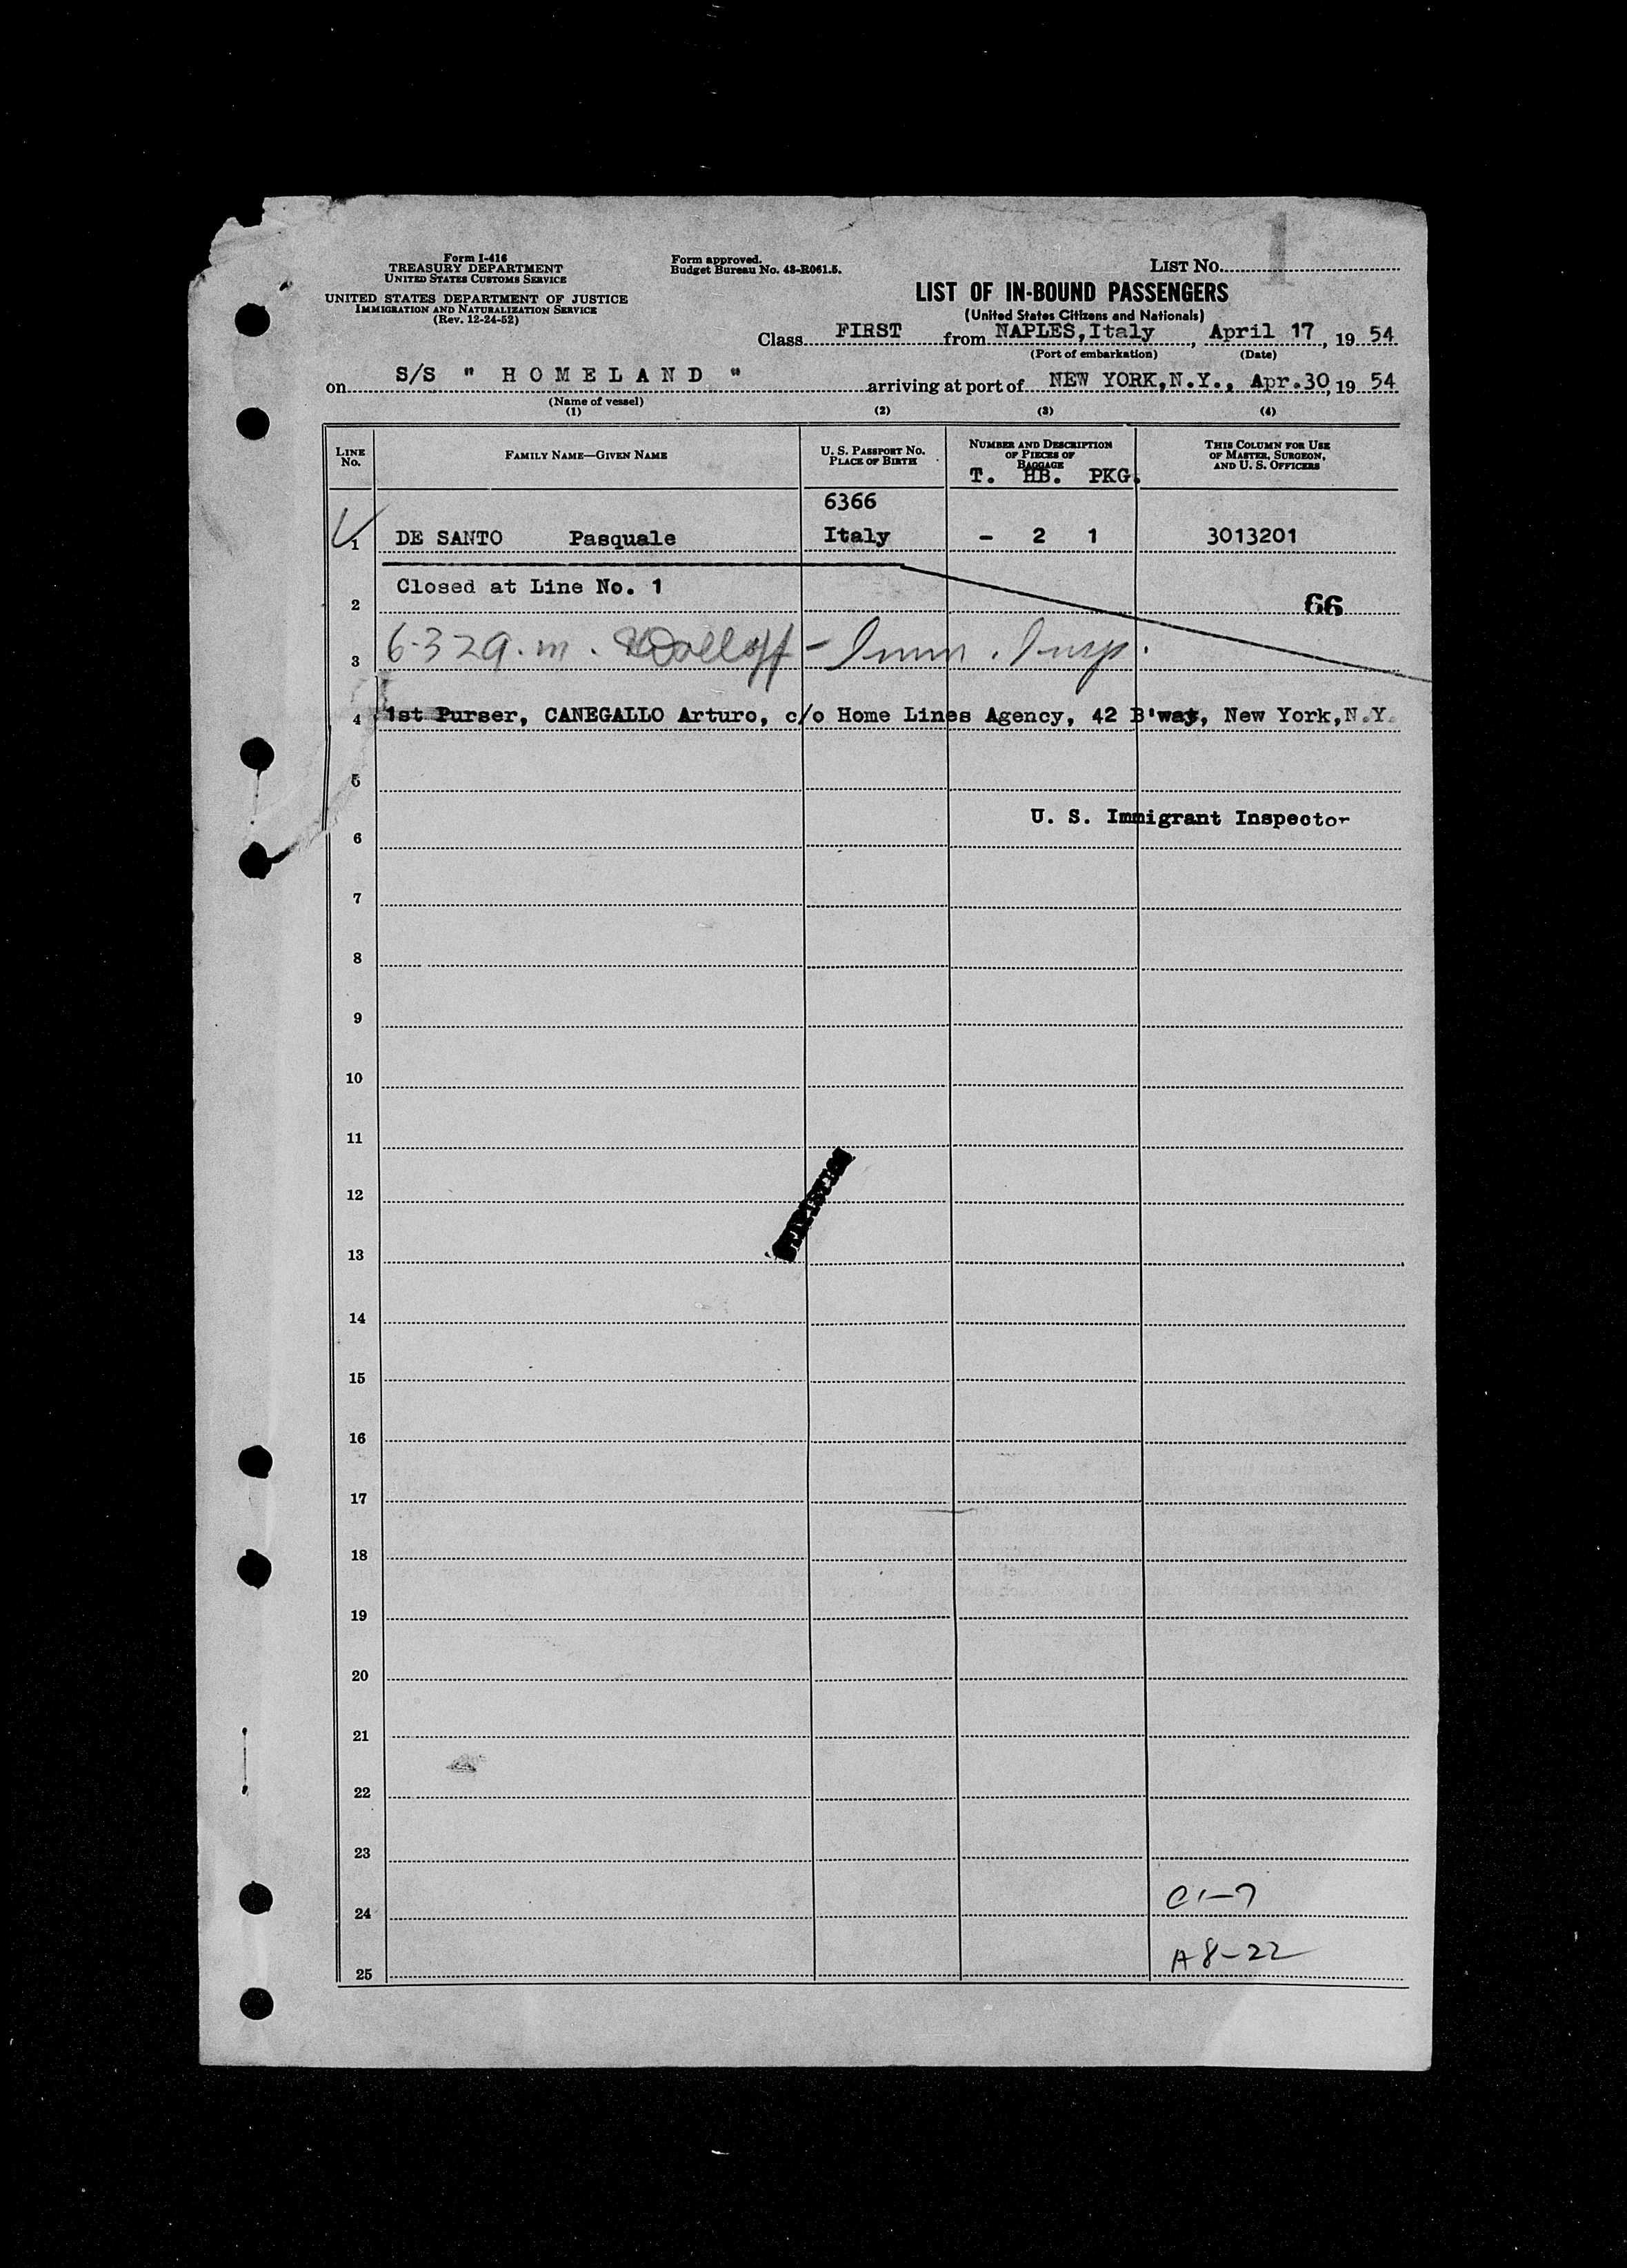 Form I-416
TREASURY DEPARTMENT
UNITED STATES CUSTOMS SERVICE
UNITED STATES DEPARTMENT OF JUSTICE
IMMIGRATION AND NATURALIZATION SERVICE
(Rev. 12-24-52)
Form approved.
Budget Bureau No. 43-R061.5.
LIST NO. 1
LIST OF IN-BOUND PASSENGERS
(United States Citizens and Nationals)
Class FIRST from NAPLES,Italy, April 17, 19 54
(Port of embarkation) (Date)
on S/S " H O M E L A N D " arriving at port of NEW YORK,N.Y., Apr.30, 19 54
(Name of vessel)
(1) (2) (3) (4)
LINE NO. FAMILY NAME—GIVEN NAME U. S. PASSPORT NO. PLACE OF BIRTH NUMBER AND DESCRIPTION OF PIECES OF BAGGAGE THIS COLUMN FOR USE OF MASTER, SURGEON, AND U. S. OFFICERS
T. HB. PKG.
6366
1 DE SANTO Pasquale Italy - 2 1 3013201
Closed at Line No. 1
2 66
3 6-329. m. - Imm. Insp.
4 1st Purser, CANEGALLO Arturo, c/o Home Lines Agency, 42 B'way, New York,N.Y.
5
U. S. Immigrant Inspector
6
7
8
9
10
11
12
13
14
15
16
17
18
19
20
21
22
23
24
A8-22
25